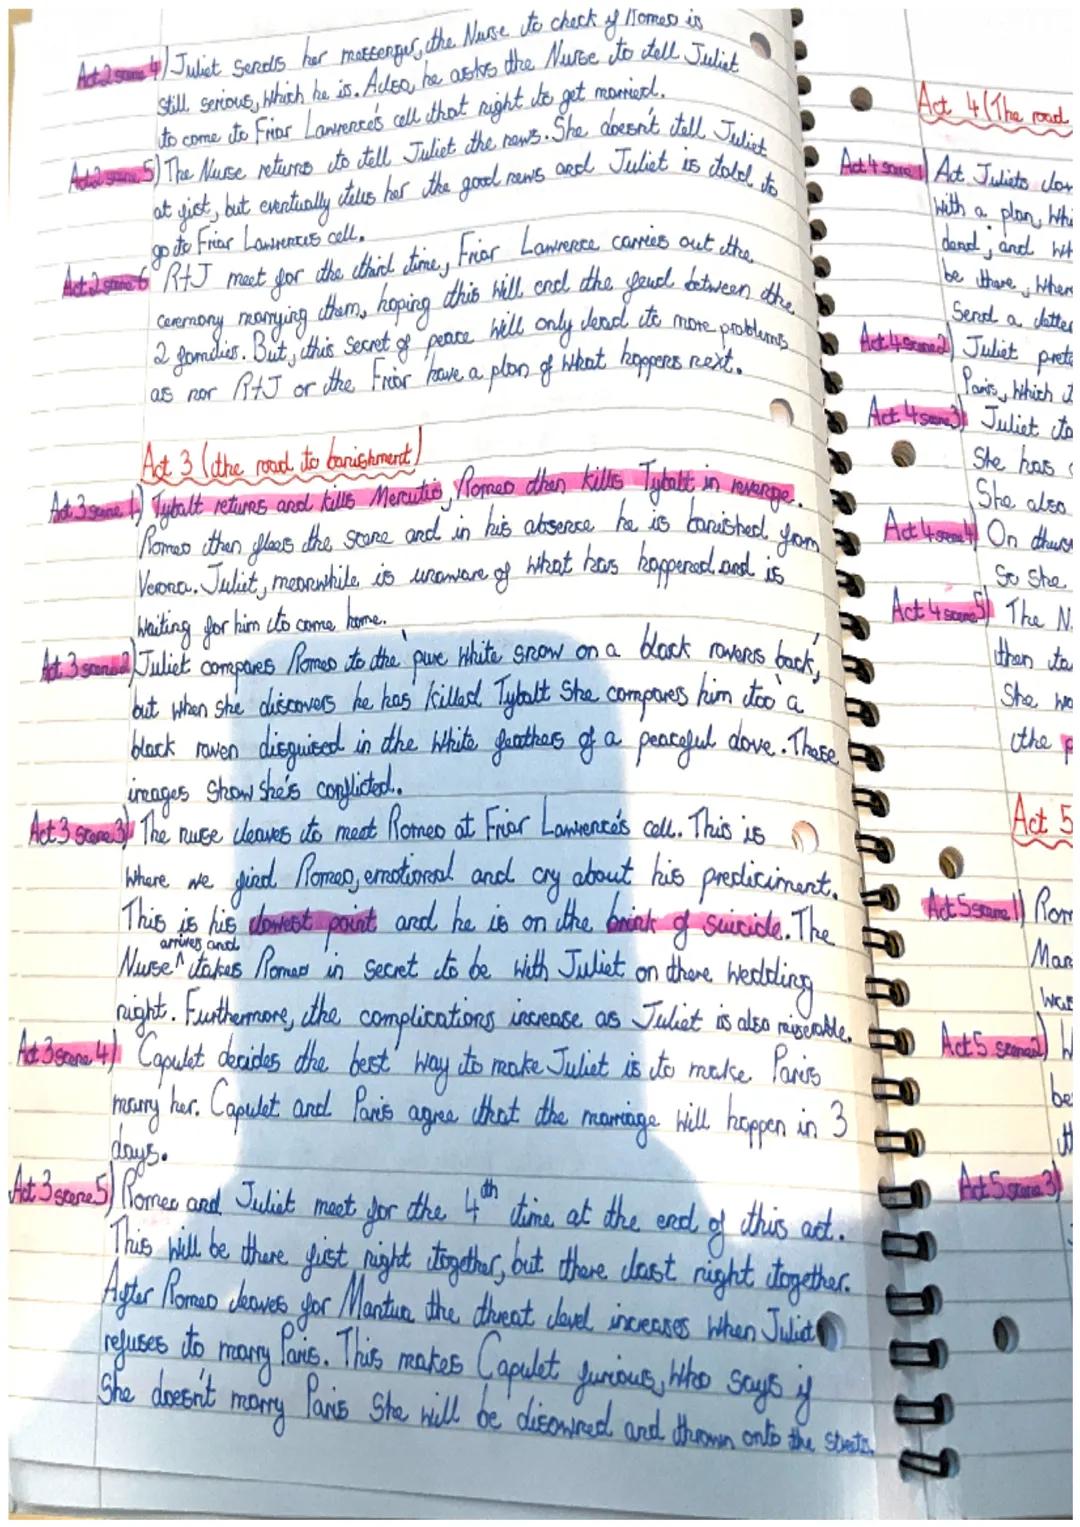 Act 2 scene 4) Juliet sends her messenger, the Nurse to check if Romeo is
still serious, which he is. Also, he asks the Nurse to tell Juliet
to come to Friar Lawrence's cell that night to get married.
Act 2 scene 5) The Nurse returns to tell Juliet the news. She doesn't tell Juliet
at fist, but eventually telus her the good news and Juliet is told to
go to Friar Lawrences cell.
Act 2 scene 6 R+J meet for the third time, Friar Lawrence carries out the
ceremony marrying them, hoping this will end the feud between the
2 families. But, this secret of peace will only lead to more problems
as nor R+J or the Friar have a plan of what happens next.
Act 3 (the road to banishment)
Act 3 scene 1) Tybalt returns and kills Mercutio, Romeo then kills Tybalt in revenge.
Romeo then flees the scene and in his absence he is banished from
Verona. Juliet, meanwhile is unaware of what has happened and is
waiting for him to come home.
Act 3 scene 2) Juliet compares Romeo to the 'pure white snow on a black ravens back',
but when she discovers he has killed Tybalt she compares him too 'a
black raven disguised in the white feathers of a peaceful dove. These
images show she's conflicted.
Act 3 scene 3) The nurse leaves to meet Romeo at Friar Lawrence's cell. This is
where we find Romeo, emotional and cry about his prediciment.
This is his lowest point and he is on the brink of suicide. The
Nurse ^ arrives and takes Romeo in secret to be with Juliet on there wedding
night. Furthermore, the complications increase as Juliet is also miserable.
Act 3 scene 4) Capulet decides the best way to make Juliet is to make Paris
marry her. Capulet and Paris agree that the marriage will happen in 3
days.
Act 3 scene 5) Romeo and Juliet meet for the 4th time at the end of this act.
This will be there fist night together, but there last night together.
After Romeo leaves for Mantua the threat level increases when Juliet
refuses to marry Paris. This makes Capulet furious, who says if
she doesn't marry Paris she will be disowned and thrown onto the streets.
Act 4 (The road
Act 4 scene 1) Act Juliets
with a plan,
dead, and
be there, when
Send a letter
Act 4 scene 2) Juliet
Paris, which
Act 4 scene 3) Juliet
She has
She also
Act 4 scene 4) On
So she
Act 4 scene 5) The
then
She
the
Act 5
Act 5 scene 1)
Act 5 scene 2)
Act 5 scene 3)